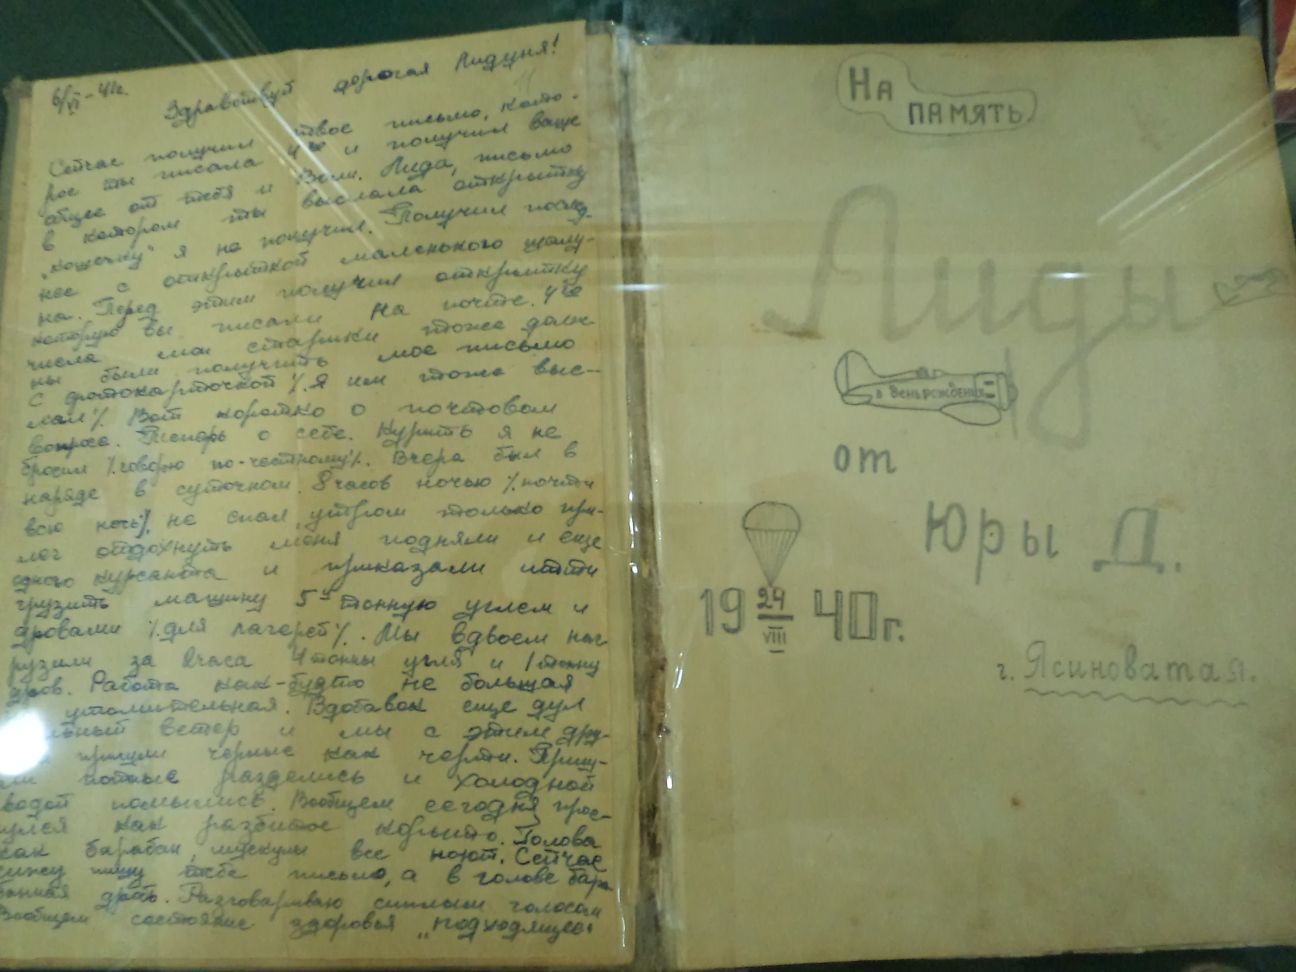 6/VI-41г.
Здравствуй дорогая Лидуня!
Сейчас получил твое письмо, кото-
рое ты писала 4го и получил ваше
общее от тебя и Вали. Лида, письмо
в котором ты выслала открытку
"кошечку" я не получил. Получил послед-
нее с открыткой маленького шалу-
на. Перед этим получил открытку
которую вы писали на почте. 4го
числа мои старики тоже долж-
ны были получить мое письмо
с фотокарточкой /. Я им тоже выс-
лал/. Вот коротко о почтовом
вопросе. Теперь о себе. Курить я не
бросил /говорю по-честному/. Вчера был в
наряде в суточном. 8 часов ночью /почти
всю ночь/, не спал, утром только при-
лег отдохнуть меня подняли и еще
одного курсанта и приказали итти
грузить машину 5и тонную углем и
дровами /для лагерей/. Мы вдвоем наг-
рузили за 2 часа 4 тонны угля и 1 тонну
дров. Работа как-будто не большая
утомительная. Вдобавок еще дул
ветер и мы с этим дру-
пришли черные как черти. Приш-
ли потные разделись и холодной
водой помылись. Вообщем сегодня прос-
нулся как разбитое корыто. Голова
как барабан, мускулы все ноют. Сейчас
сижу пишу тебе письмо, а в голове бара-
банная дробь. Разговариваю сиплым голосом
Вообщем состояние здоровья "подходящее"
НА
ПАМЯТЬ
Лиды
в день рождения
от
Юры Д.
19 24/VIII 40г.
г. Ясиноватая.